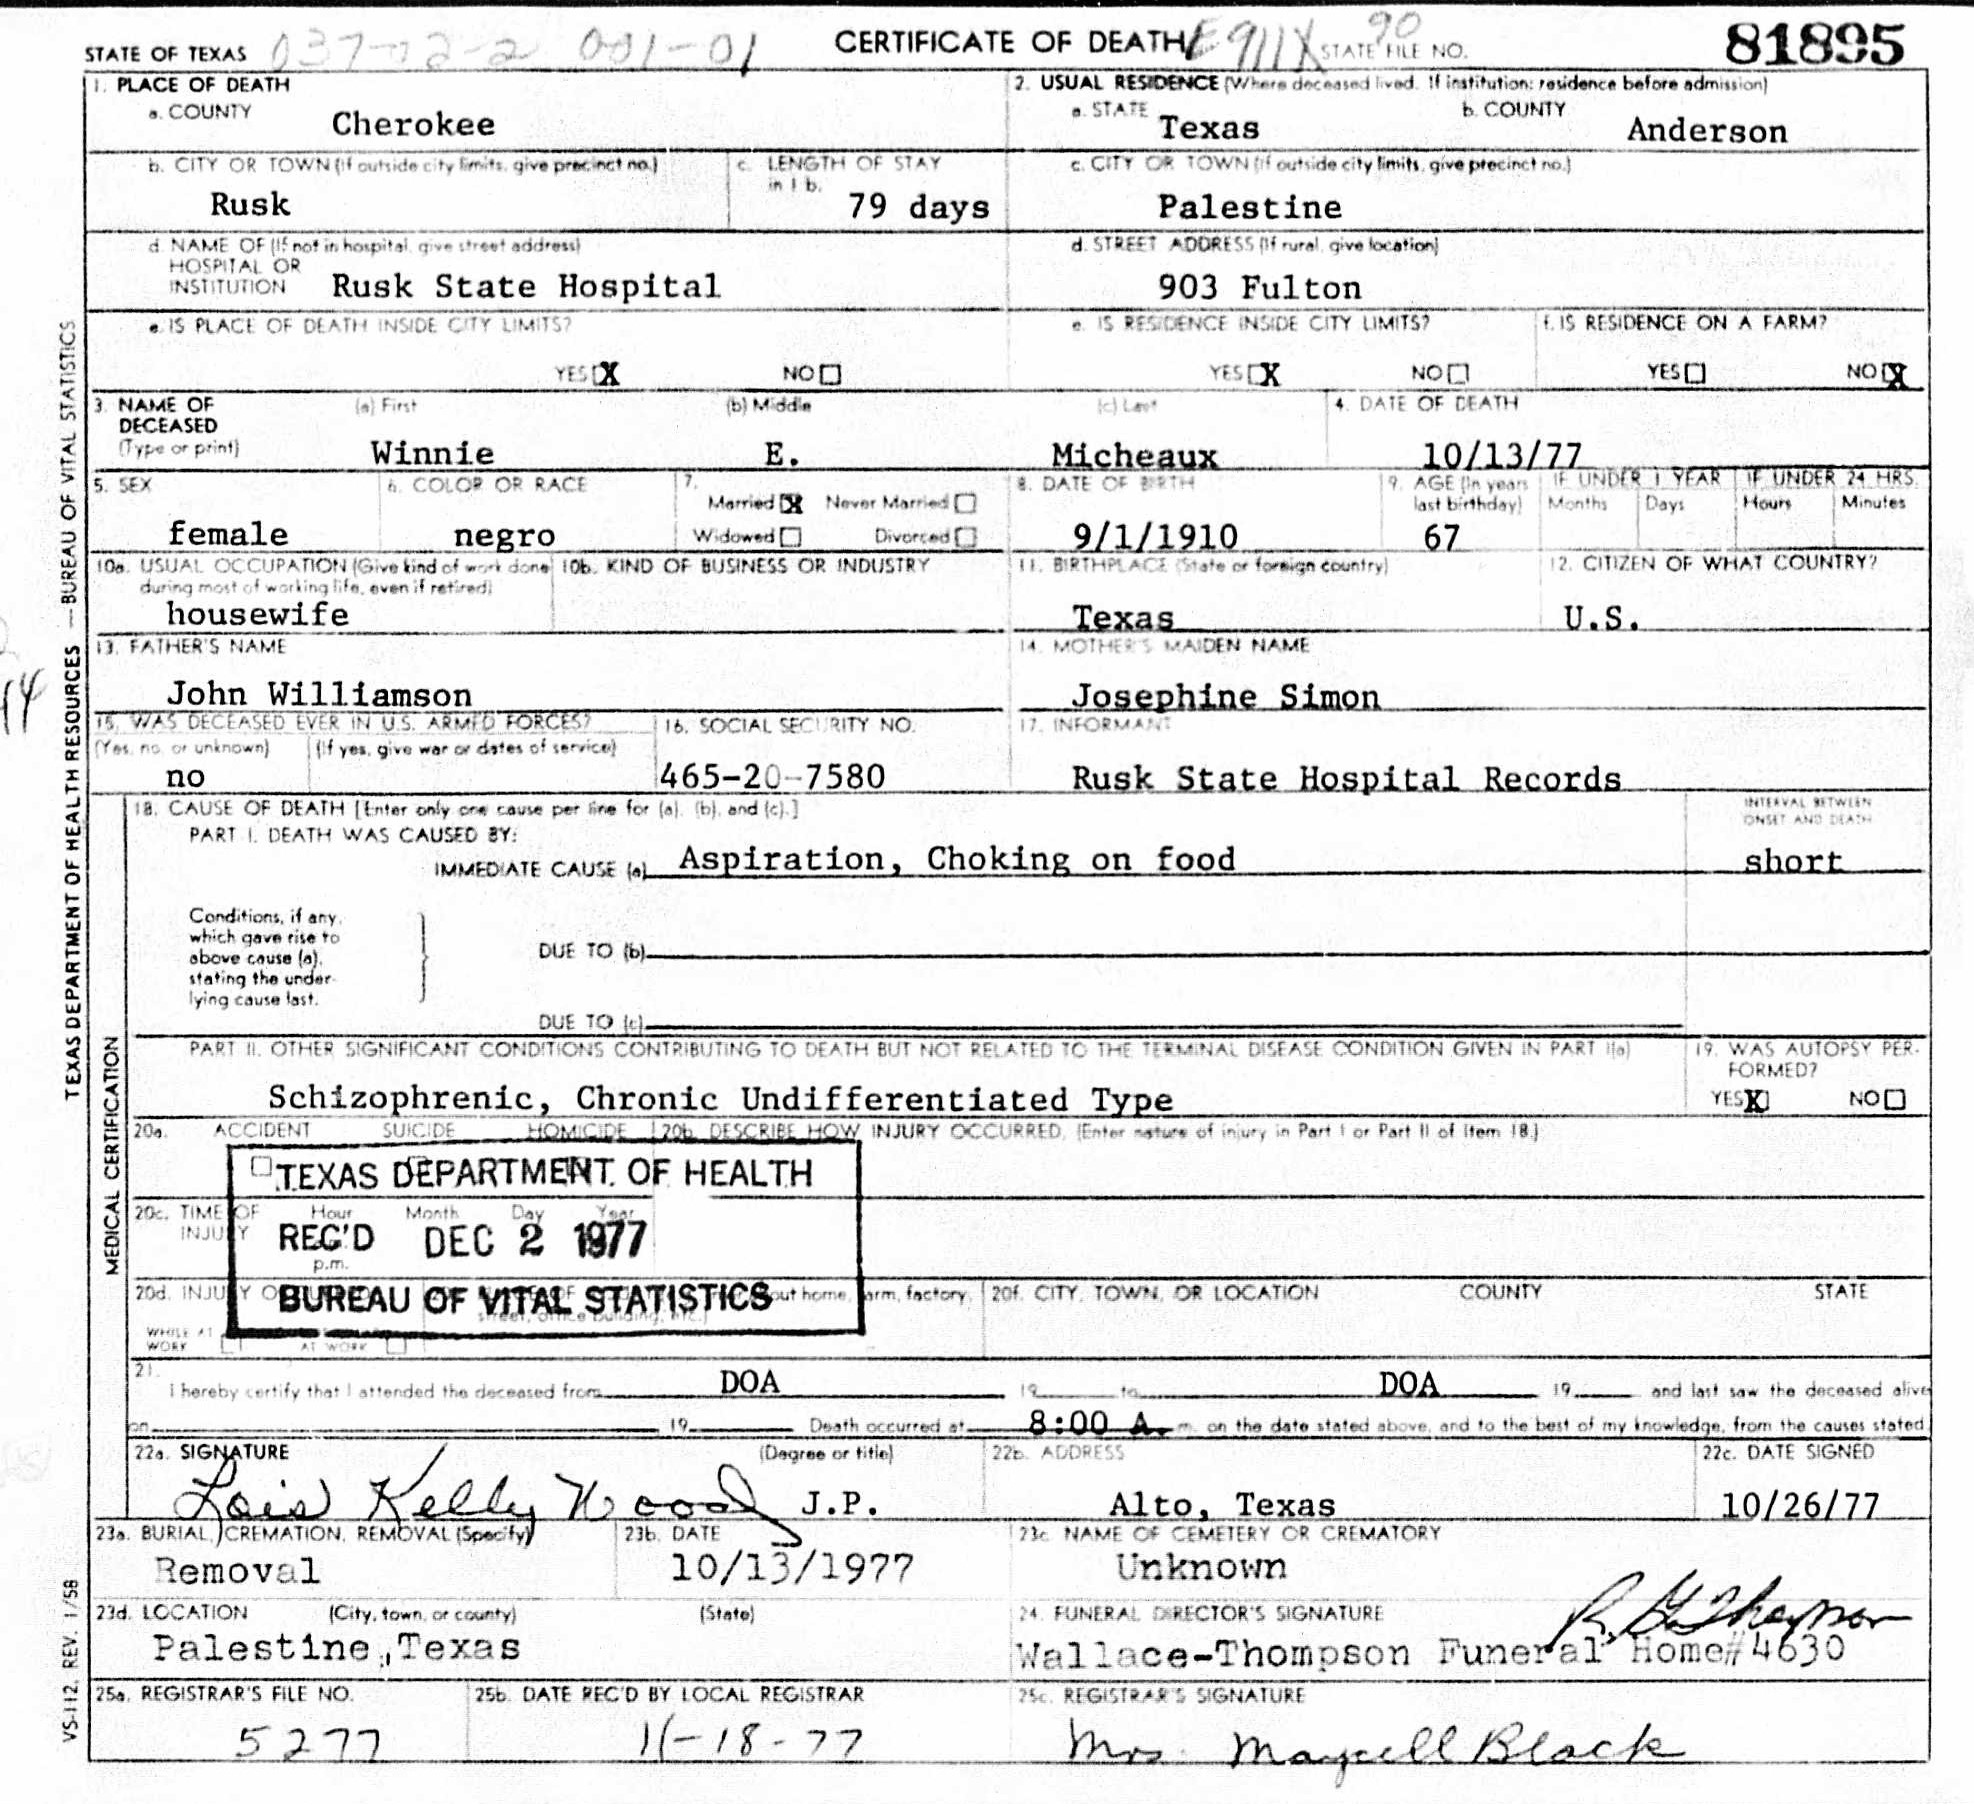 STATE OF TEXAS 037-02-2 001-01 CERTIFICATE OF DEATH E911X 90 STATE FILE NO. 81895
1. PLACE OF DEATH
a. COUNTY Cherokee
2. USUAL RESIDENCE (Where deceased lived. If institution: residence before admission)
a. STATE Texas b. COUNTY Anderson
b. CITY OR TOWN (If outside city limits, give precinct no.) Rusk
c. LENGTH OF STAY in 1 b. 79 days
c. CITY OR TOWN (If outside city limits, give precinct no.) Palestine
d. NAME OF (If not in hospital, give street address)
HOSPITAL OR
INSTITUTION Rusk State Hospital
d. STREET ADDRESS (If rural, give location)
903 Fulton
e. IS PLACE OF DEATH INSIDE CITY LIMITS?
YES X NO
e. IS RESIDENCE INSIDE CITY LIMITS?
YES X NO
f. IS RESIDENCE ON A FARM?
YES NO X
3. NAME OF DECEASED (Type or print)
(a) First (b) Middle (c) Last
Winnie E. Micheaux
4. DATE OF DEATH
10/13/77
5. SEX
female
6. COLOR OR RACE
negro
7. Married X Never Married
Widowed Divorced
8. DATE OF BIRTH
9/1/1910
9. AGE (In years last birthday)
67
IF UNDER 1 YEAR
Months Days
IF UNDER 24 HRS.
Hours Minutes
10a. USUAL OCCUPATION (Give kind of work done during most of working life, even if retired)
housewife
10b. KIND OF BUSINESS OR INDUSTRY
11. BIRTHPLACE (State or foreign country)
Texas
12. CITIZEN OF WHAT COUNTRY?
U.S.
13. FATHER'S NAME
John Williamson
14. MOTHER'S MAIDEN NAME
Josephine Simon
15. WAS DECEASED EVER IN U.S. ARMED FORCES?
(Yes, no, or unknown) (If yes, give war or dates of service)
no
16. SOCIAL SECURITY NO.
465-20-7580
17. INFORMANT
Rusk State Hospital Records
18. CAUSE OF DEATH [Enter only one cause per line for (a), (b), and (c).]
PART I. DEATH WAS CAUSED BY:
IMMEDIATE CAUSE (a) Aspiration, Choking on food
INTERVAL BETWEEN
ONSET AND DEATH
short
Conditions, if any,
which gave rise to
above cause (a),
stating the under-
lying cause last.
DUE TO (b)
DUE TO (c)
PART II. OTHER SIGNIFICANT CONDITIONS CONTRIBUTING TO DEATH BUT NOT RELATED TO THE TERMINAL DISEASE CONDITION GIVEN IN PART I(a)
Schizophrenic, Chronic Undifferentiated Type
19. WAS AUTOPSY PER-
FORMED?
YES X NO
20a. ACCIDENT SUICIDE HOMICIDE
20b. DESCRIBE HOW INJURY OCCURRED. (Enter nature of injury in Part I or Part II of Item 18.)
TEXAS DEPARTMENT OF HEALTH
REC'D DEC 2 1977
BUREAU OF VITAL STATISTICS
20c. TIME OF INJURY Hour Month Day Year
p.m.
20d. INJURY
WHILE AT WORK AT WORK
out home, farm, factory,
street, office building, etc.)
20f. CITY, TOWN, OR LOCATION COUNTY STATE
21. I hereby certify that I attended the deceased from DOA 19 to DOA 19 and last saw the deceased alive
on 19 Death occurred at 8:00 A. m. on the date stated above, and to the best of my knowledge, from the causes stated.
22a. SIGNATURE (Degree or title)
Lois Kelly Wood J.P.
22b. ADDRESS
Alto, Texas
22c. DATE SIGNED
10/26/77
23a. BURIAL, CREMATION, REMOVAL (Specify)
Removal
23b. DATE
10/13/1977
23c. NAME OF CEMETERY OR CREMATORY
Unknown
23d. LOCATION (City, town, or county) (State)
Palestine, Texas
24. FUNERAL DIRECTOR'S SIGNATURE
Wallace-Thompson Funeral Home#4630
25a. REGISTRAR'S FILE NO.
5277
25b. DATE REC'D BY LOCAL REGISTRAR
11-18-77
25c. REGISTRAR'S SIGNATURE
Mrs. Maycell Black
TEXAS DEPARTMENT OF HEALTH RESOURCES — BUREAU OF VITAL STATISTICS
MEDICAL CERTIFICATION
VS-112, REV. 1/58
14